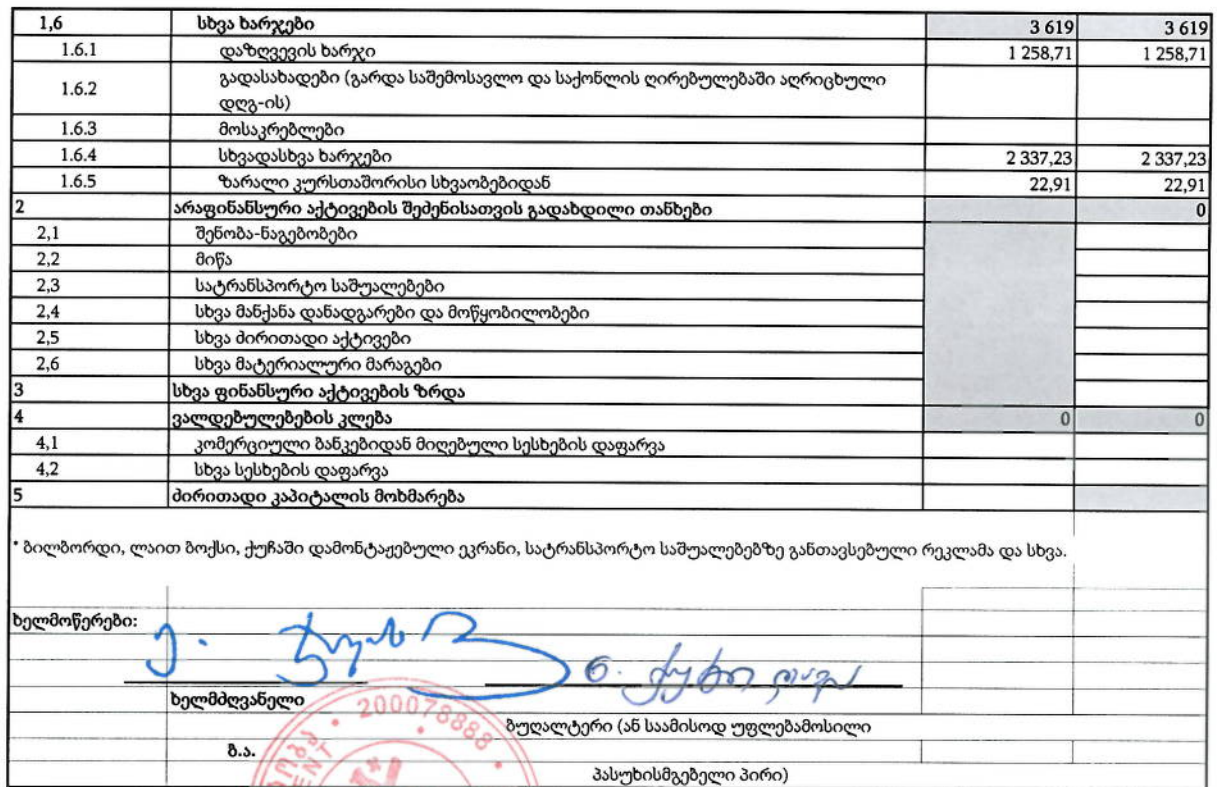 1,6 სხვა ხარჯები 3 619 3 619
1.6.1 დაზღვევის ხარჯი 1 258,71 1 258,71
1.6.2 გადასახადები (გარდა საშემოსავლო და საქონლის ღირებულებაში აღრიცხული
დღგ-ის)
1.6.3 მოსაკრებლები
1.6.4 სხვადასხვა ხარჯები 2 337,23 2 337,23
1.6.5 ზარალი კურსთაშორისი სხვაობებიდან 22,91 22,91
2 არაფინანსური აქტივების შეძენისათვის გადახდილი თანხები 0
2,1 შენობა-ნაგებობები
2,2 მიწა
2,3 სატრანსპორტო საშუალებები
2,4 სხვა მანქანა დანადგარები და მოწყობილობები
2,5 სხვა ძირითადი აქტივები
2,6 სხვა მატერიალური მარაგები
3 სხვა ფინანსური აქტივების ზრდა
4 ვალდებულებების კლება 0 0
4,1 კომერციული ბანკებიდან მიღებული სესხების დაფარვა
4,2 სხვა სესხების დაფარვა
5 ძირითადი კაპიტალის მოხმარება
* ბილბორდი, ლაით ბოქსი, ქუჩაში დამონტაჟებული ეკრანი, სატრანსპორტო საშუალებებზე განთავსებული რეკლამა და სხვა.
ხელმოწერები:
ხელმძღვანელი
200078888
ბუღალტერი (ან საამისოდ უფლებამოსილი
ბ.ა.
პასუხისმგებელი პირი)